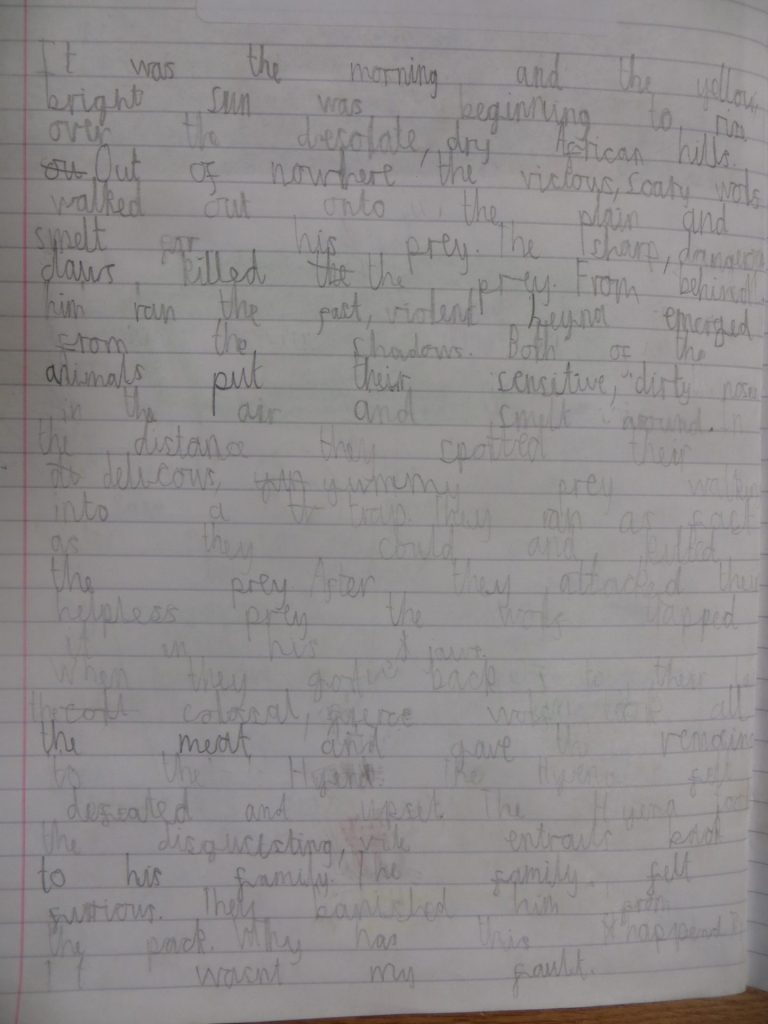 It was the morning and the yellow
bright sun was beginning to
over the desolate, dry African hills.
Out of nowhere the vicious, scary
walked out onto the plain and
smelt for his prey. The sharp,
claws, killed the the prey. From behind
him ran the fast, violent heyna emerged
from the shadows. Both of the
animals put their sensitive, dirty nose
in the air and smelt around. In
the distance they spotted their
delicous, yummy prey
into a trap. They ran as fast
as they could and killed
the prey. After they attacked their
helpless prey the yapped
it in his jaws.
When they back to their
colossal, fierce all
the meat and gave the remains
to the Hyena. The Hyena felt
defeated and upset. The Hyena took
the disguisting, vile entrails back
to his family. The family felt
furious. They banished him from
the pack. Why has this happend?
It wasnt my fault.